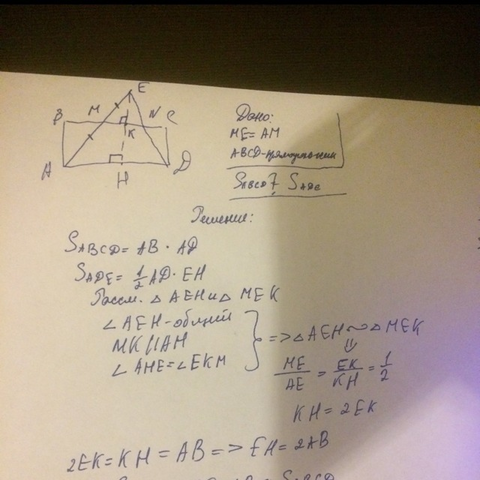 E
B M N C
K
A H D
Дано:
ME = AM
ABCD-прямоугольник
SABCD ? SADE
Решение:
SABCD = AB · AD
SADE = 1/2 AD · EH
Рассм. △ AEH и △ MEK
∠AEH-общий
MK || AH
∠AHE = ∠EKM
=> △ AEH ~ △ MEK
ME/AE = EK/KH = 1/2
KH = 2EK
2EK = KH = AB => EH = 2AB